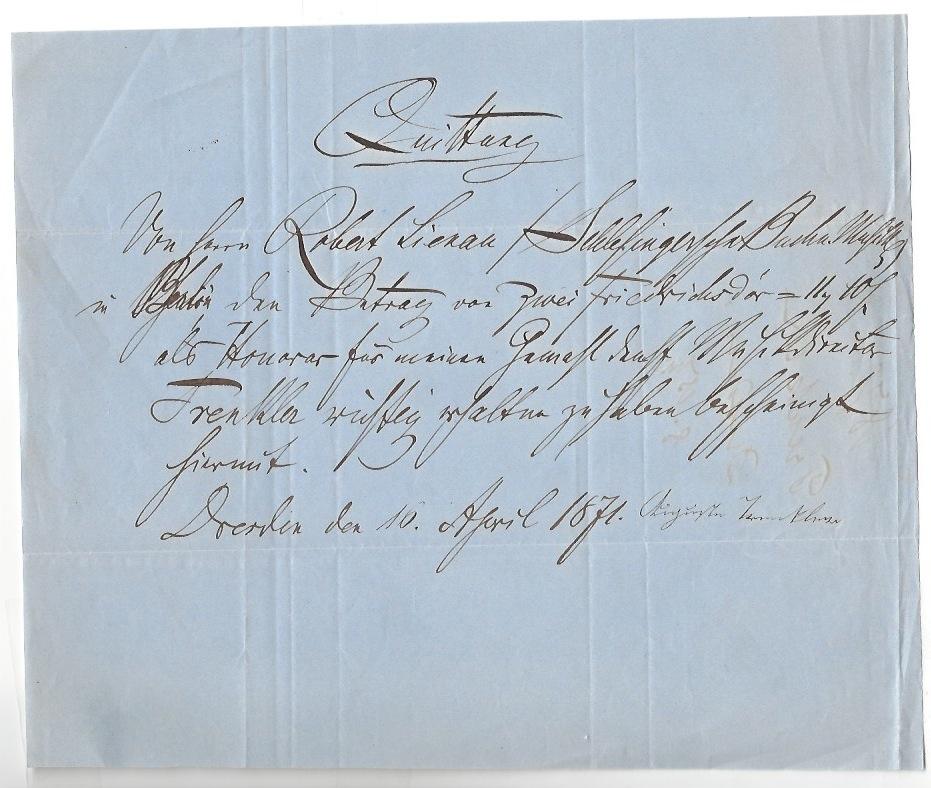 Quittung
Von Herrn Robert Lienau / Schlesingersche Buch u. Musikh
in Berlin den Betrag von zwei Friedrichsdor = 11 10
als Honorar für meinen Gemahl Musikdirektor
Trenkler richtig erhalten zu haben bescheinigt
hiermit.
Dresden den 10. April 1871. Auguste Trenkler